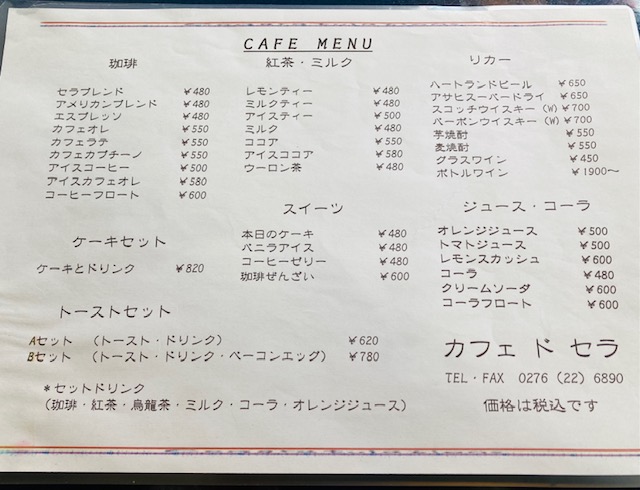 CAFE MENU
珈琲
セラブレンド ¥480
アメリカンブレンド ¥480
エスプレッソ ¥480
カフェオレ ¥550
カフェラテ ¥550
カフェカプチーノ ¥550
アイスコーヒー ¥500
アイスカフェオレ ¥580
コーヒーフロート ¥600
ケーキセット
ケーキとドリンク ¥820
紅茶・ミルク
レモンティー ¥480
ミルクティー ¥480
アイスティー ¥500
ミルク ¥480
ココア ¥550
アイスココア ¥580
ウーロン茶 ¥480
スイーツ
本日のケーキ ¥480
バニラアイス ¥480
コーヒーゼリー ¥480
珈琲ぜんざい ¥600
リカー
ハートランドビール ¥650
アサヒスーパードライ ¥650
スコッチウイスキー (W) ¥700
バーボンウイスキー (W) ¥700
芋焼酎 ¥550
麦焼酎 ¥550
グラスワイン ¥450
ボトルワイン ¥1900～
ジュース・コーラ
オレンジジュース ¥500
トマトジュース ¥500
レモンスカッシュ ¥600
コーラ ¥480
クリームソーダ ¥600
コーラフロート ¥600
トーストセット
Aセット (トースト・ドリンク) ¥620
Bセット (トースト・ドリンク・ベーコンエッグ) ¥780
＊セットドリンク
(珈琲・紅茶・烏龍茶・ミルク・コーラ・オレンジジュース)
カフェ ド セラ
TEL・FAX 0276 (22) 6890
価格は税込です